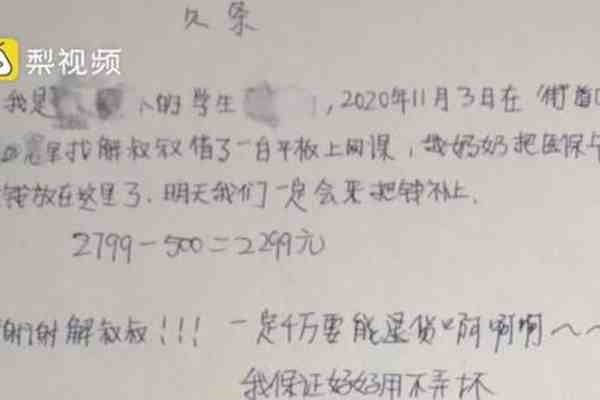 久条
梨视频
我是 的学生 ,2020年11月3日在街道
里找解叔叔借了一台平板上网课,我奶奶把医保卡
钱放在这里了.明天我们一定会来把钱补上.
2799-500=2299元
谢谢解叔叔!!! 一定千万要能退货啊啊啊~~
我保证好好用不弄坏